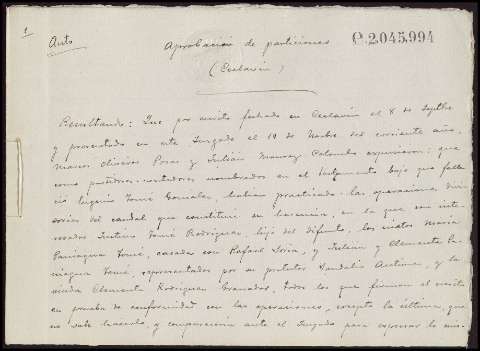 1
Auto
Aprobación de particiones
C.2.045.994
(Ceclavín)
Resultando: Que por escrito fechado en Ceclavín el 8 de Septbre
y presentado en este Juzgado el 19 de Novbre del corriente año,
Marcos Olivares Porras y Julián expusieron: que
como partidores-contadores nombrados en el testamento bajo que falle-
ció Eugenio Tomé González, habían practicado las operaciones divi-
sorias del caudal que constituía su herencia, en la que son inte-
resados Justino Tomé Rodríguez, hijo del difunto, los nietos María
Paniagua Tomé, casada con Rafael Soria, y Julián y Clemente Pa-
niagua Tomé, representados por su protutor Sandalio Antúnez, y la
viuda Clementa Rodríguez Granados, todos los que firman el escrito
en prueba de conformidad con las operaciones, excepto la última, que
no sabe hacerlo, y comparecerá ante el Juzgado para expresar la mis-